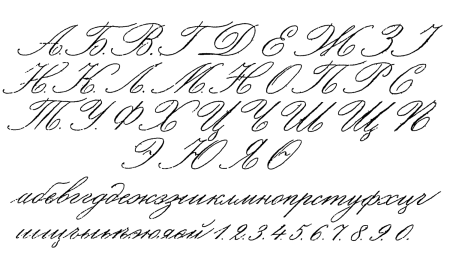 А. Б. В. Г Д Е Ж З І
И. К. Л. М. Н О П Р С
Т. У. Ф Х Ц Ч Ш Щ Ѣ
Э Ю Я Ѳ
клмнопрстуфхцч
шщъыьѣэюяѳй 1. 2. 3. 4. 5. 6. 7. 8. 9. 0.